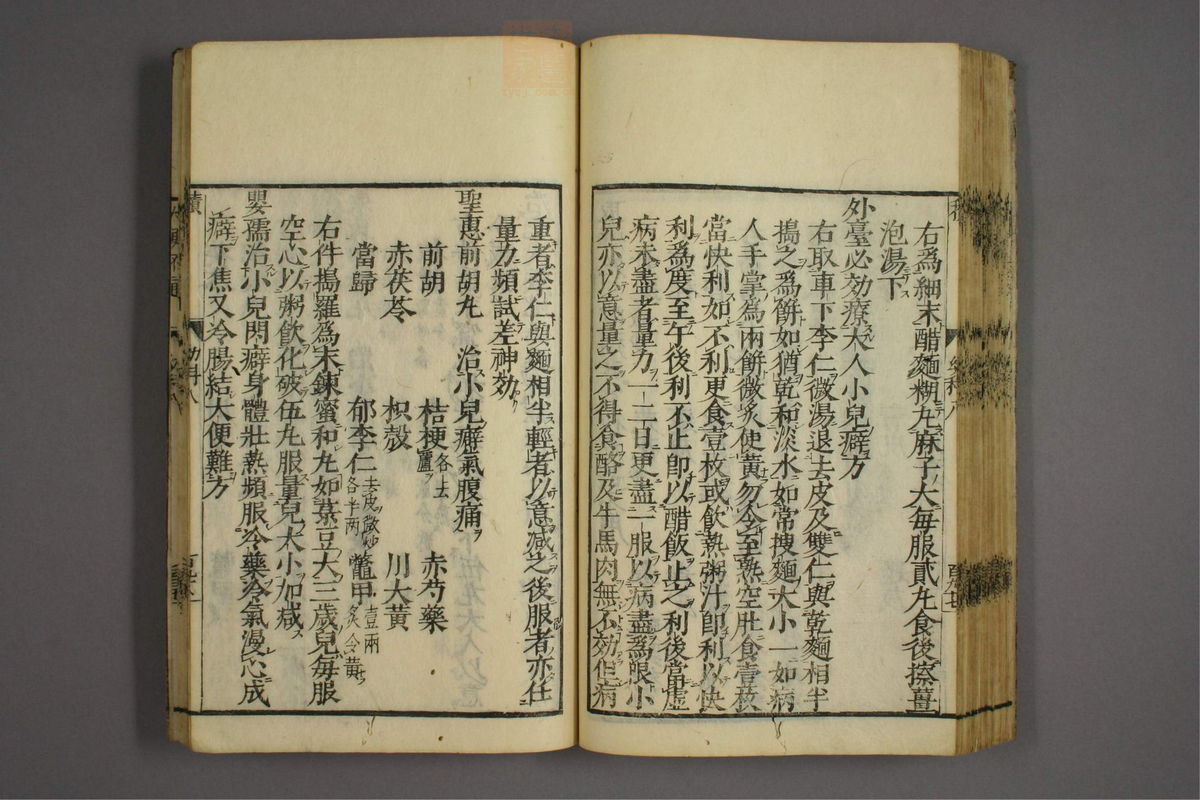 右爲細末醋麵糊丸麻子大每服貳丸食後擦薑
泡湯下
外臺必効療大人小兒癖方
右取車下李仁微湯退去皮及雙仁與乾麵相半
搗之爲餅如猶乾和淡水如常搜麵大小一如病
人手掌爲兩餅微炙使黃勿令至熟空肚食壹枚
當快利如不利更食壹枚或飲熱粥汁即利以快
利爲度至午後利不止即以醋飯止之利後當虛
病未盡者量力一二日更盡一服以病盡爲限小
兒亦以意量之不得食酪及牛馬肉無不効但病
重者李仁與麵相半輕者以意減之後服者亦任
量力頻試差神効
聖惠前胡丸 治小兒癖氣腹痛
前胡 桔梗各去蘆 赤芍藥
赤茯苓 枳殼 川大黃
當歸 郁李仁去皮微炒各半两 鼈甲壹兩炙令黃
右件搗羅爲末鍊蜜和丸如菉豆大三歲兒每服
空心以粥飲化破伍丸服量兒大小加减
嬰孺治小兒閃癖身體壯熱頻服冷藥冷氣漫心成
癖下焦又冷腸結大便難方